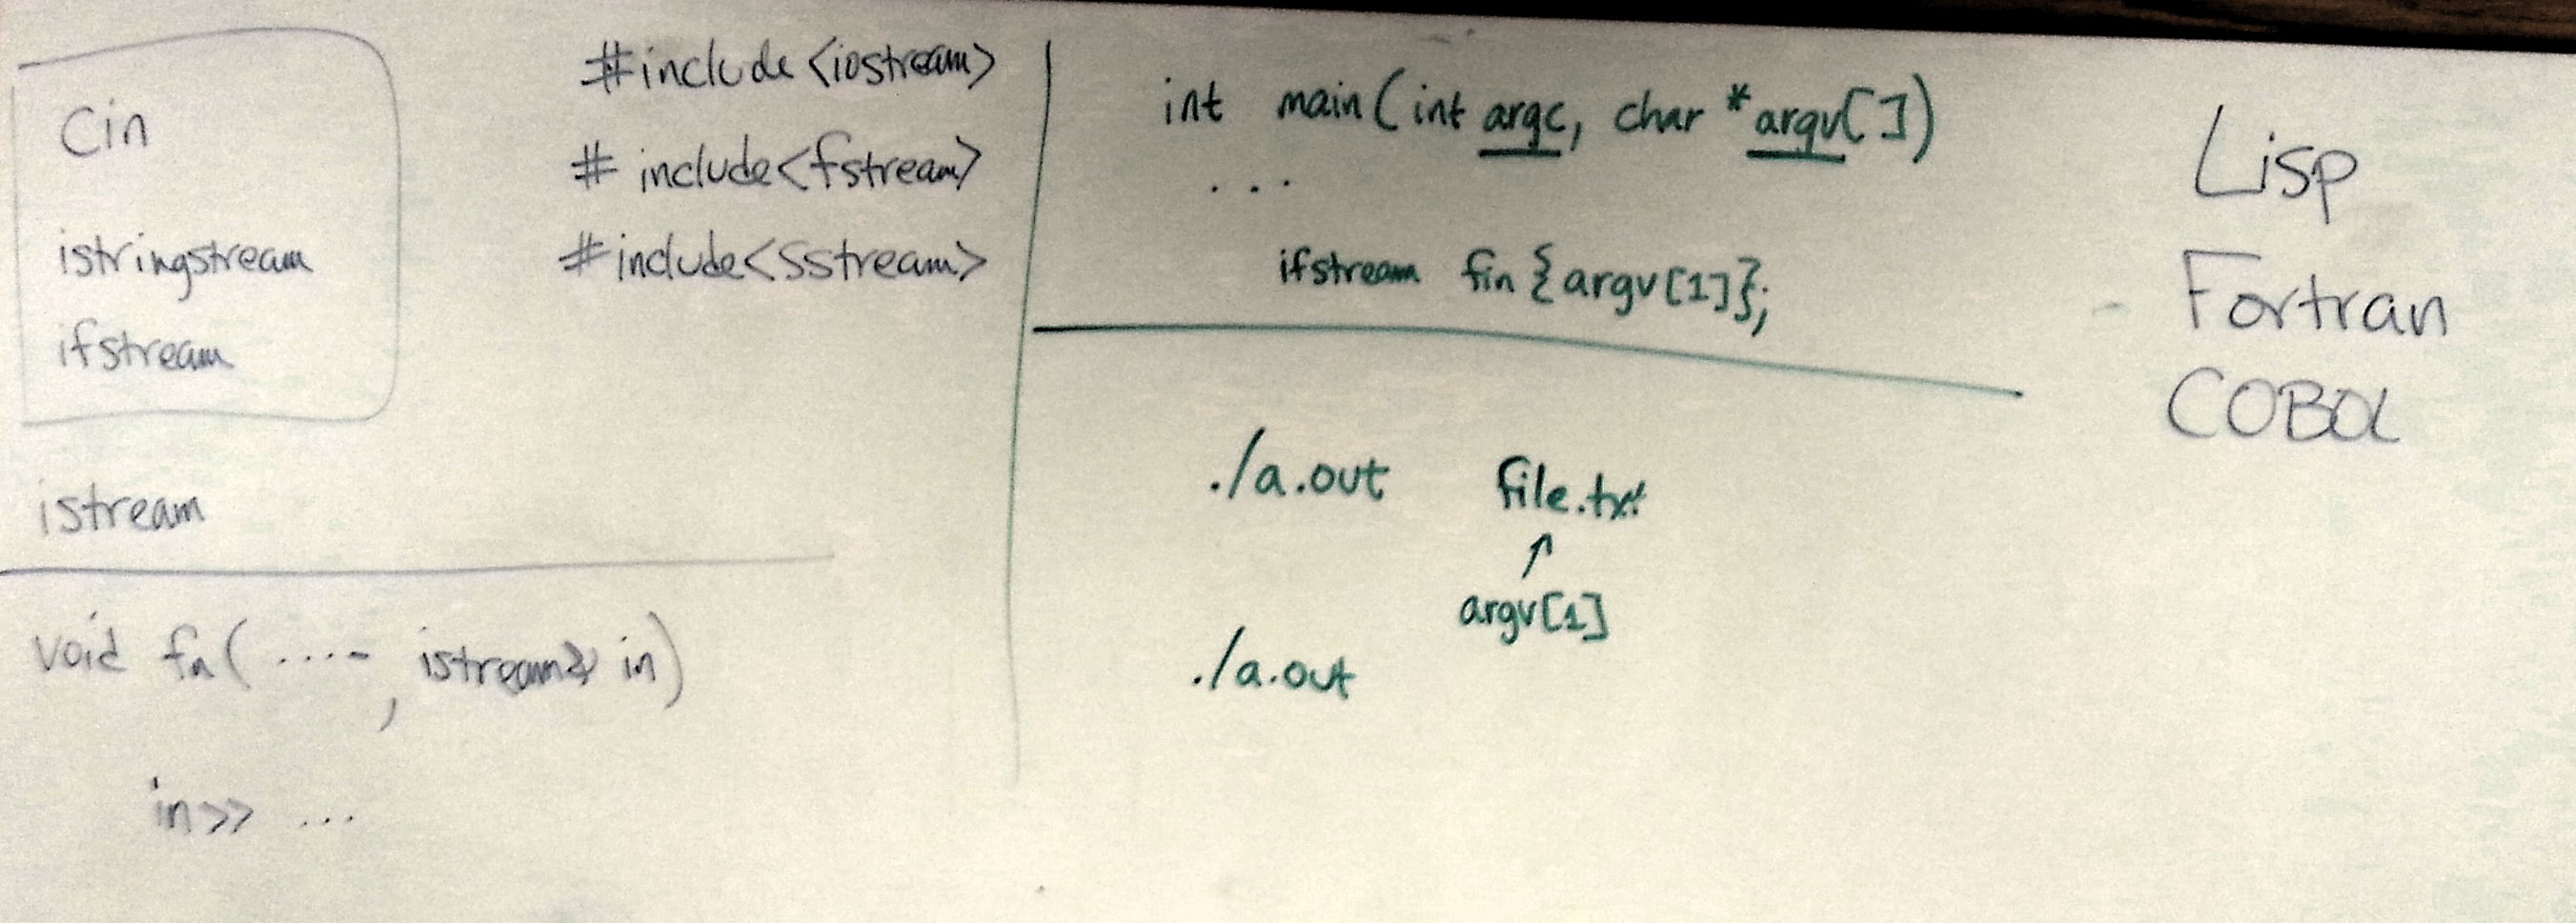 Cin
istringstream
ifstream
istream
void fn( ...., istream& in)
in>> ...
#include <iostream>
# include<fstream>
#include<sstream>
int main(int argc, char *argv[])
...
ifstream fin{argv[1]};
./a.out file.txt
↑
argv[1]
./a.out
Lisp
Fortran
COBOL